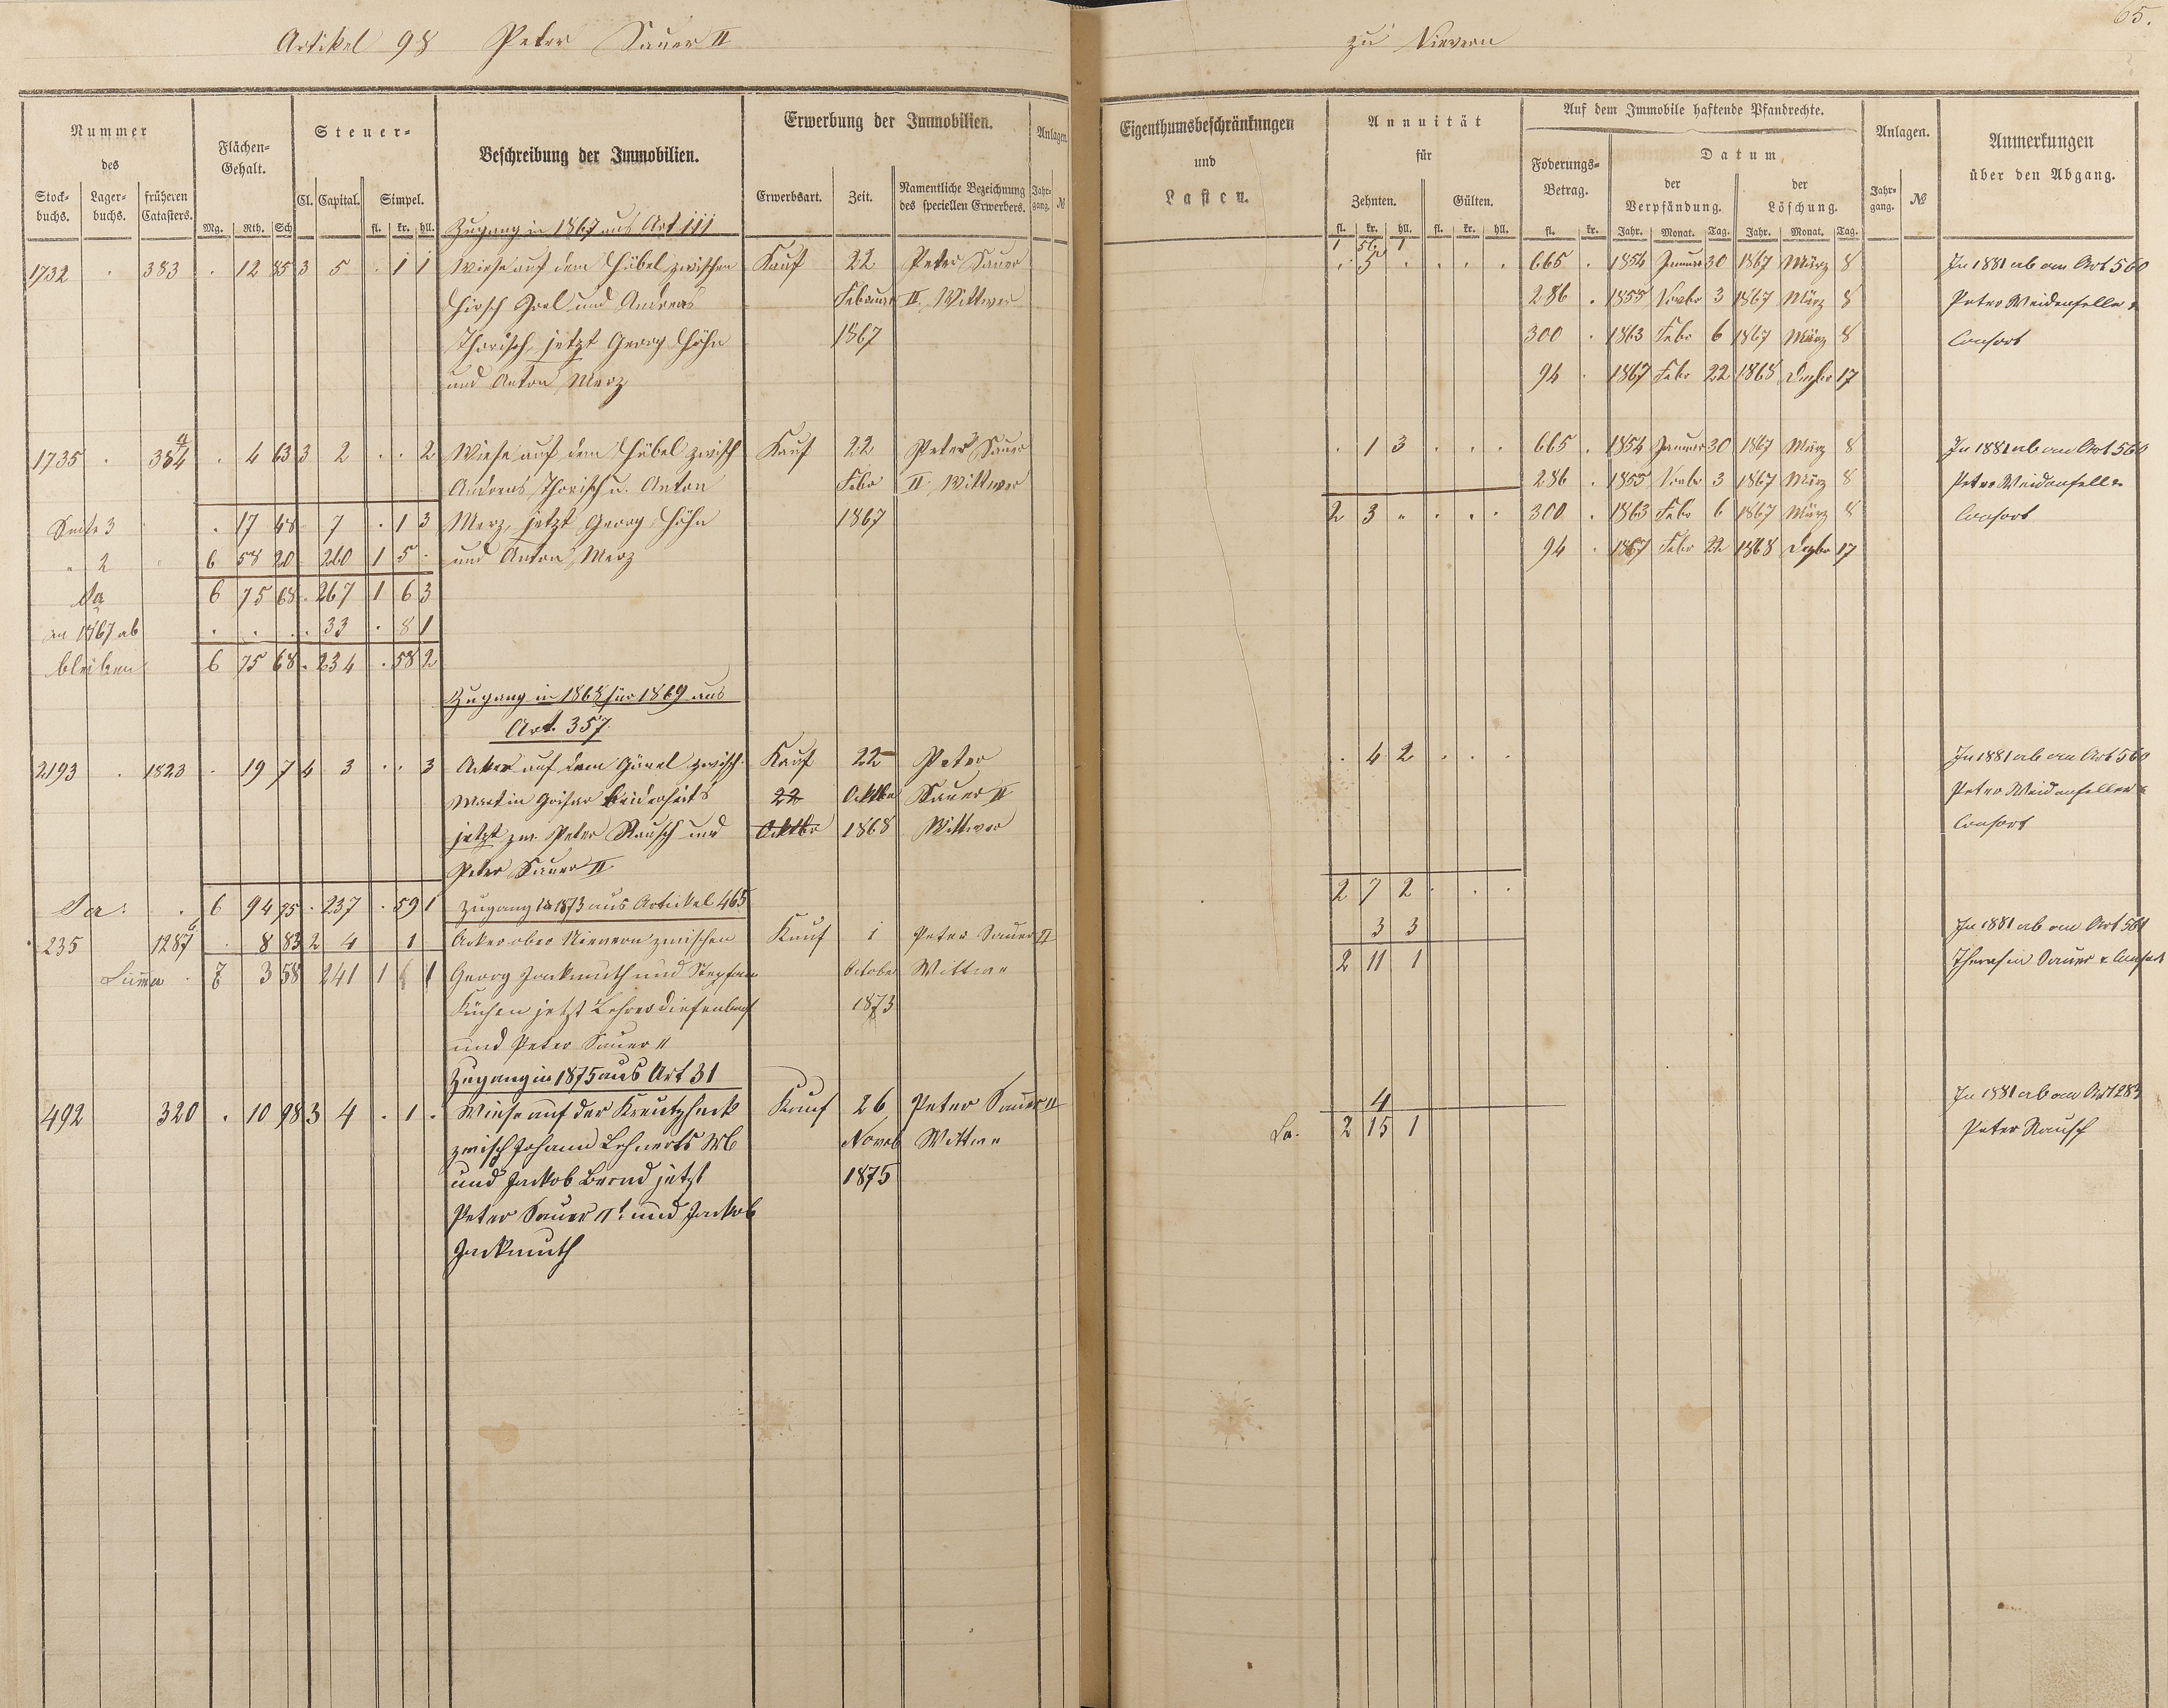 65.
Artikel 98 Peter Sauer II zu Nievern
Nummer des
Stock-buchs. Lager-buchs. früheren Catasters.
Flächen-Gehalt.
Mg. Rth. Sch
Steuer-
Cl. Capital. Simpel.
fl. kr. hll.
Beschreibung der Immobilien.
Erwerbung der Immobilien.
Erwerbsart. Zeit. Namentliche Bezeichnung des speciellen Erwerbers.
Anlagen.
Jahr-gang. №
Eigenthumsbeschränkungen
und
Lasten.
Annuität
für
Zehnten. Gülten.
fl. kr. hll. fl. kr. hll.
Auf dem Immobile haftende Pfandrechte.
Foderungs-Betrag.
fl. kr.
Datum
der Verpfändung. der Löschung.
Jahr. Monat. Tag. Jahr. Monat. Tag.
Anlagen.
Jahr-gang. №
Anmerkungen
über den Abgang.
Zugang in 1867 aus Art 111
1 56 1
1732 . 383 . 12 85 3 5 . 1 1 Wiese auf dem Hübel zwischen Kauf 22 Peter Sauer . 5 . . . . 665 . 1854 Januar 30 1867 März 8 In 1881 ab an Art 560
Hirsch Goel und Andreas Februar II. Wittwer 286 . 1855 Novbr 3 1867 März 8 Peter Weidenfeller &
Thorisch, jetzt Georg Höhn 1867 300 . 1863 Febr 6 1867 März 8 Consort
und Anton Merz 94 . 1867 Febr 22 1868 Dezbr 17
1735 . 384 a . 4 63 3 2 . . 2 Wiese auf dem Hübel zwisch Kauf 22 Peter Sauer . 1 3 . . . 665 . 1854 Januar 30 1867 März 8 In 1881 ab an Art 560
Andreas Thorisch u. Anton Febr II. Wittwer 286 . 1855 Novbr 3 1867 März 8 Peter Weidenfeller
Seite 3 . 17 48 . 7 . 1 3 Merz, jetzt Georg Höhn 1867 2 3 . . . . 300 . 1863 Febr 6 1867 März 8 Consort
" 2 6 58 20 260 1 5 . und Anton Merz 94 . 1867 Febr 22 1868 Dezbr 17
Sa 6 75 68 . 267 1 6 3
in 1867 ab . . . . 33 . 8 1
bleiben 6 75 68 . 234 . 58 2
Zugang in 1868 für 1869 aus
Art. 357.
2193 . 1823 . 19 7 4 3 . . 3 Acker auf dem zwisch. Kauf 22 Peter . 4 2 . . . In 1881 ab an Art 560
Martin beiderseits 22 Oktbr Sauer II Peter Weidenfeller &
jetzt zw. Peter Rausch und Oktbr 1868 Wittwer Consort
Peter Sauer II.
Sa. . 6 94 75 . 237 . 59 1 Zugang in 1873 aus Artikel 465 2 7 2 . . .
235 1287 . 8 83 2 4 1 Acker ober Nievern zwischen Kauf 1 Peter Sauer II 3 3 In 1881 ab an Art 561
Summa . 7 3 58 241 1 1 Georg Jackmuth und Stephan October Wittwe 2 11 1 Theresia Sauer & Consort
Küchen jetzt Lehrer Diefenbach 1873
und Peter Sauer II
Zugang in 1875 aus Art 31
492 320 . 10 98 3 4 . 1 . Wiese auf der Kreutzheck Kauf 26 Peter Sauer II 4 In 1881 ab an Art 283
zwisch Johann Lehnerts Wb Noveb Wittwe Sa. 2 15 1 Peter Rausch
und Jackob Bernd jetzt 1875
Peter Sauer II. und Jackob
Jackmuth